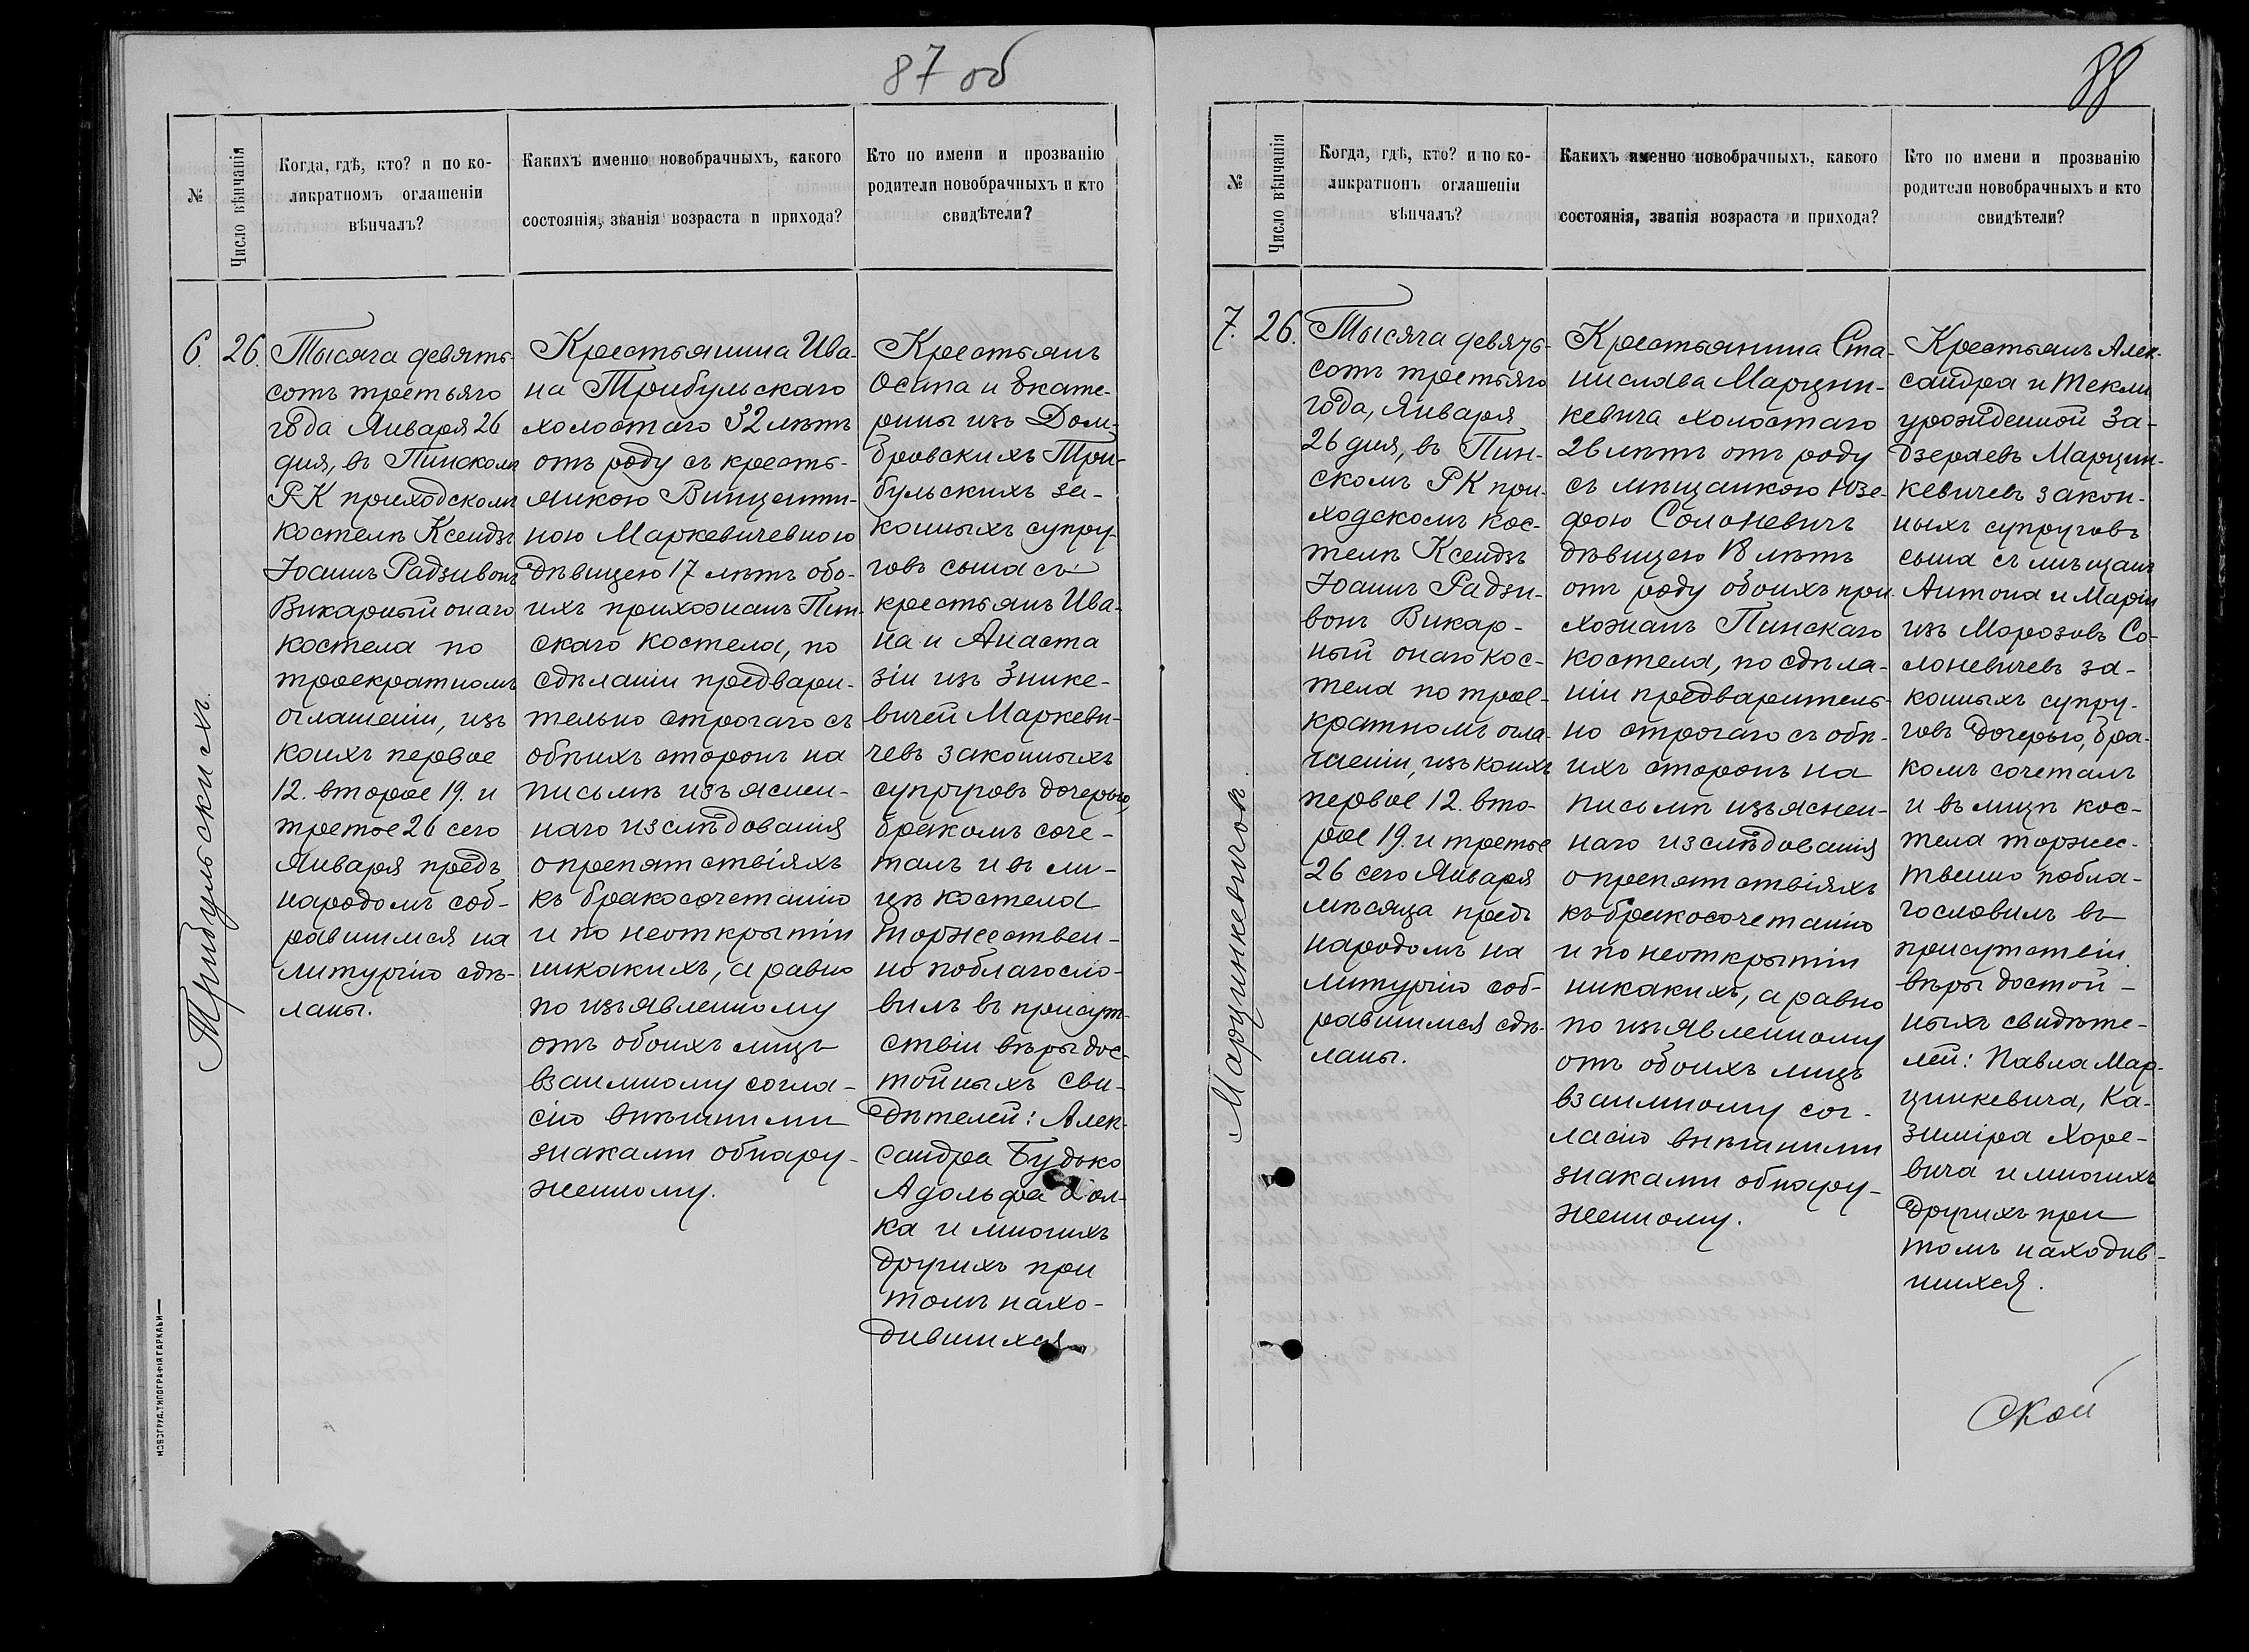 87 об
№
Число вѣнчанія
Когда, гдѣ, кто? и по ко-
ликратномъ оглашеніи
вѣнчалъ?
Какихъ именно новобрачныхъ, какого
состоянія, званія возраста и прихода?
Кто по имени и прозванію
родители новобрачныхъ и кто
свидѣтели?
6.
26.
Трибульскихъ.
Тысяча девять-
сотъ третьяго
года Января 26
дня, въ Пинскомъ
Р-К приходскомъ
костелѣ Ксендзъ
Іоаннъ Радзивонъ
Викарный онаго
костела по
троекратномъ
оглашеніи, изъ
коихъ первое
12. второе 19. и
третое 26 сего
Января предъ
народомъ соб-
равшимся на
литургію сдѣ-
ланы.
Крестьянина Ива-
на Трибульскаго
холостаго 32 лѣтъ
отъ роду съ кресть-
янкою Винценти-
ною Маркевичевною
дѣвицею 17 лѣтъ обо-
ихъ прихожанъ Пин-
скаго костела, по
сдѣланіи предвари-
тельно строгаго съ
обѣихъ сторонъ на
письмѣ изъяснен-
наго изслѣдованія
о препятствіяхъ
къ бракосочетанію
и по неоткрытіи
никакихъ, а равно
по изъявленному
отъ обоихъ лицъ
взаимному согла-
сію внѣшними
знаками обнару-
женному.
Крестьянъ
Осипа и Екате-
рины изъ Дом-
бровскихъ Три-
бульскихъ за-
конныхъ супру-
говъ сына съ
крестьянъ Ива-
на и Анаста
зіи изъ Знике-
вичей Маркеви-
чевъ законныхъ
супруговъ дочерью,
бракомъ соче-
талъ и въ ли-
цѣ костела
торжествен-
но поблагосло-
вилъ въ присут-
ствіи вѣры дос-
тойныхъ сви-
дѣтелей: Алек-
сандра Будько
Адольфа
ка и многихъ
другихъ при
томъ нахо-
дившихся
НОВОГРУД. ТИПОГРАФІЯ ГАРКАВИ
88
№
Число вѣнчанія
Когда, гдѣ, кто? и по ко-
ликратномъ оглашеніи
вѣнчалъ?
Какихъ именно новобрачныхъ, какого
состоянія, званія возраста и прихода?
Кто по имени и прозванію
родители новобрачныхъ и кто
свидѣтели?
7.
26.
Марцинкевичовъ.
Тысяча девять-
сотъ третьяго
года, Января
26 дня, въ Пин-
скомъ РК при-
ходскомъ кос-
телѣ Ксендзъ
Іоаннъ Радзи-
вонъ Викар-
ный онаго кос-
тела по трое-
кратномъ огла-
шеніи, изъ коихъ
первое 12. вто-
рое 19. и третое
26 сего Января
мѣсяца предъ
народомъ на
литургію соб-
равшимся сдѣ-
ланы.
Крестьянина Ста-
нислава Марцин-
кевича холостаго
26 лѣтъ отъ роду
съ мѣщанкою Юзе-
фою Солоневичъ
дѣвицею 18 лѣтъ
отъ роду обоихъ при
хожанъ Пинскаго
костела, по сдѣла-
ніи предваритель-
но строгаго съ обѣ-
ихъ сторонъ на
письмѣ изъяснен-
наго изслѣдованія
о препятствіяхъ
къ бракосочетанію
и по неоткрытіи
никакихъ, а равно
по изъявленному
отъ обоихъ лицъ
взаимному сог-
ласію внѣшними
знаками обнару-
женному.
Крестьянъ Алек-
сандра и Текли
урожденной За-
дзераевъ Марцин-
кевичевъ закон-
ныхъ супруговъ
сына съ мѣщанъ
Антона и Маріи
изъ Морозовъ Со-
лоневичевъ за-
конныхъ супру-
говъ дочерью, бра-
комъ сочеталъ
и въ лицѣ кос-
тела торжес-
твенно побла-
гословилъ въ
присутствіи
вѣры достой-
ныхъ свидѣте-
лей: Павла Мар-
цинкевича, Ка-
зиміра Харе-
вича и многихъ
другихъ при
томъ находив-
шихся.
ской